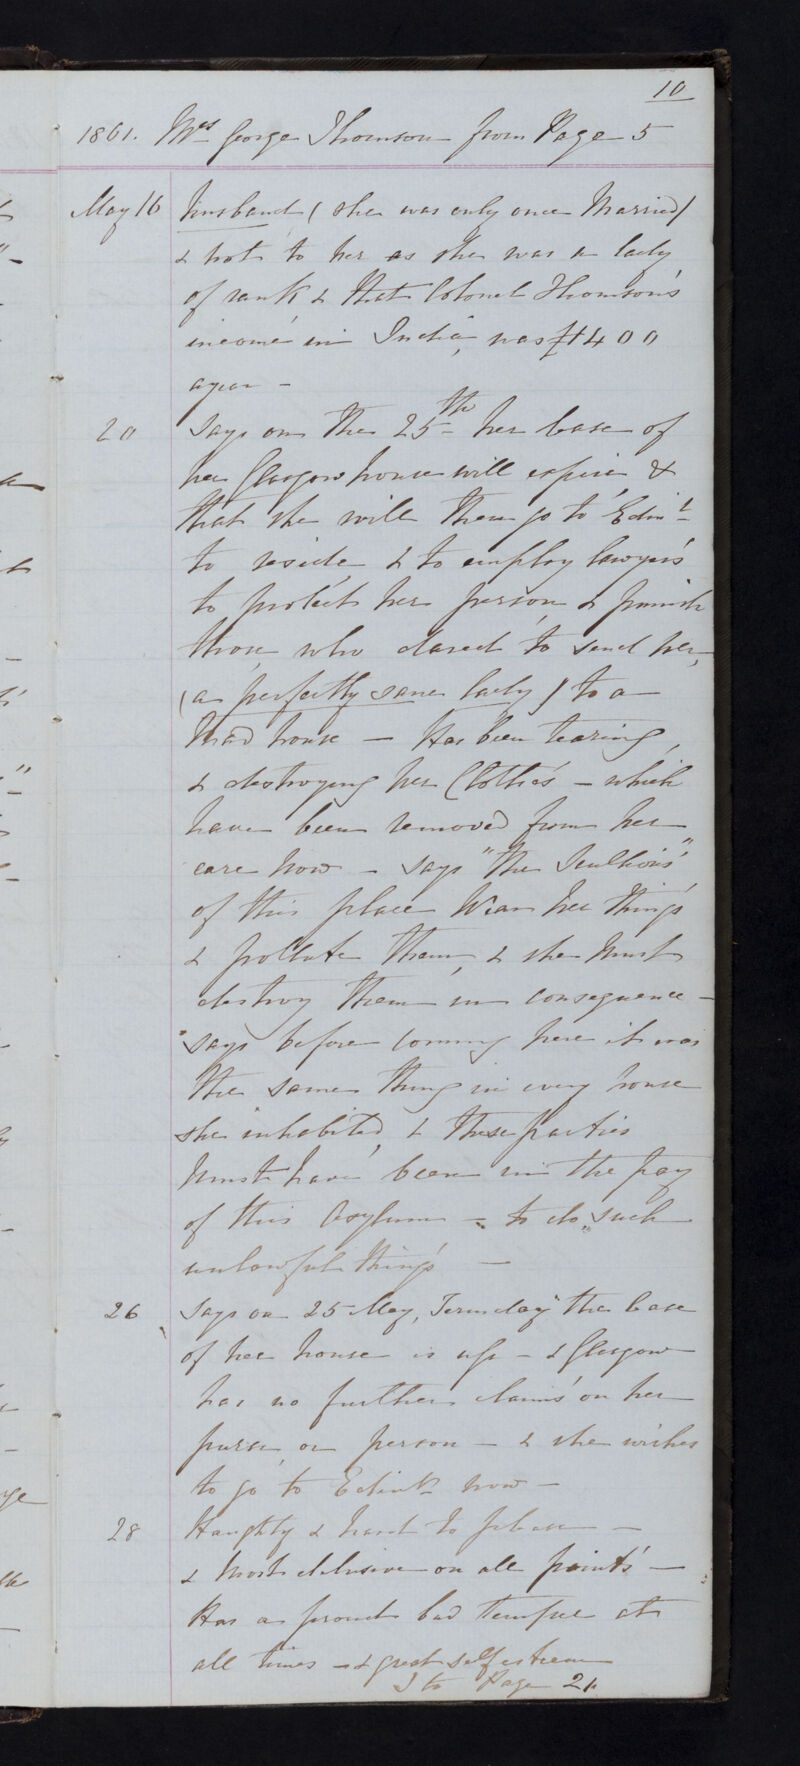 10
1861. Mrs George Thomson from Page 5
May 16 husband (she was only once Married)
& not to her as she was a lady
of rank & that Colonel Thomson's
income in India, was £1400
a year –
20 Says on the 25th her lease of
her Glasgow house will expire &
that she will then go to Edinr
to reside & to employ lawyers
to protect her person & punish
those who dared to send her,
(a perfectly sane lady) to a
Mad house – Has been tearing,
& destroying her Clothes – which
have been removed from her
care now – Says "the Scullions"
of this place Wear her things
& pollute them, & she Must
destroy them in consequence –
Says before coming here it was
the same thing in every house
she inhabited, & these parties
Must have been in the pay
of this Asylum – to do such
unlawful things –
26 Says on 25 May, Term day the lease
of her house is up – & Glasgow
has no further claims on her
purse or person – & she wishes
to go to Edinr now –
28 Haughty & hard to please –
& Most delusive on all points –
Has a proud bad temper at
all times – & great self esteem
to Page 21